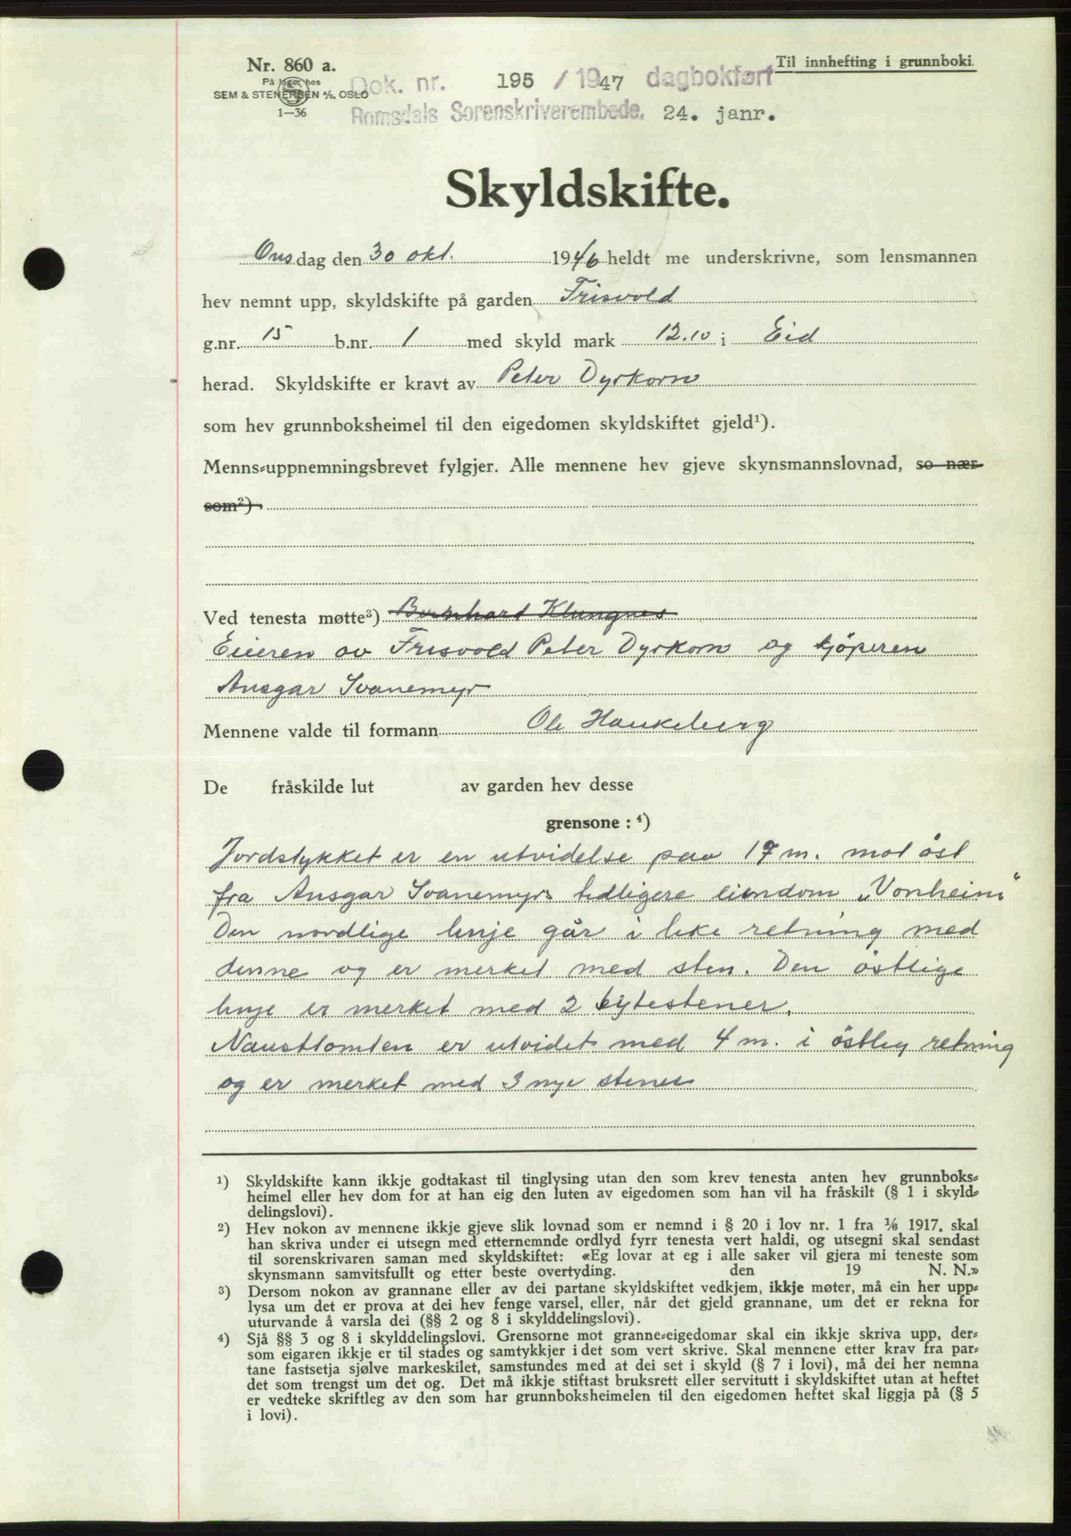 Nr. 860 a.
På lager hos
SEM & STENERSEN A/S, OSLO
1—36
Til innhefting i grunnboki.
Dok. nr. 195 / 1947 dagbokført
Romsdals Sorenskriverembede. 24. janr.
Skyldskifte.
Onsdag den 30 okt. 1946 heldt me underskrivne, som lensmannen
hev nemnt upp, skyldskifte på garden Frisvold
g.nr. 15 b.nr. 1 med skyld mark 12.10 i Eid
herad. Skyldskifte er kravt av Peter Dyrkorn
som hev grunnboksheimel til den eigedomen skyldskiftet gjeld¹).
Menns-uppnemningsbrevet fylgjer. Alle mennene hev gjeve skynsmannslovnad, so nær
som²)
Ved tenesta møtte³) Bernhard Klungnes
Eieren av Frisvold Peter Dyrkorn og kjöperen
Ansgar Svanemyr
Mennene valde til formann Ole Haukeberg
De fråskilde lut av garden hev desse
grensone : ⁴)
Jordstykket er en utvidelse paa 17 m. mot öst
fra Ansgar Svanemyrs tidligere eiendom „Vonheim"
Den nordlige linje går i like retning med
denne og er merket med sten. Den östlige
linje er merket med 2 bytestener.
Nausttomten er utvidet med 4 m. i östlig retning
og er merket med 3 nye stener
¹) Skyldskifte kann ikkje godtakast til tinglysing utan den som krev tenesta anten hev grunnboks-
heimel eller hev dom for at han eig den luten av eigedomen som han vil ha fråskilt (§ 1 i skyld-
delingslovi).
²) Hev nokon av mennene ikkje gjeve slik lovnad som er nemnd i § 20 i lov nr. 1 fra 1/6 1917, skal
han skriva under ei utsegn med etternemnde ordlyd fyrr tenesta vert haldi, og utsegni skal sendast
til sorenskrivaren saman med skyldskiftet: «Eg lovar at eg i alle saker vil gjera mi teneste som
skynsmann samvitsfullt og etter beste overtyding. den 19 N. N.»
³) Dersom nokon av grannane eller av dei partane skyldskiftet vedkjem, ikkje møter, må ein her upp-
lysa um det er prova at dei hev fenge varsel, eller, når det gjeld grannane, um det er rekna for
uturvande å varsla dei (§§ 2 og 8 i skylddelingslovi).
⁴) Sjå §§ 3 og 8 i skylddelingslovi. Grensorne mot granne-eigedomar skal ein ikkje skriva upp, der-
som eigaren ikkje er til stades og samtykkjer i det som vert skrive. Skal mennene etter krav fra par-
tane fastsetja sjølve markeskilet, samstundes med at dei set i skyld (§ 7 i lovi), må dei her nemna
det som trengst um det og. Det må ikkje stiftast bruksrett eller servitutt i skyldskiftet utan at heftet
er vedteke skriftleg av den som har grunnboksheimelen til den eigedomen heftet skal liggja på (§ 5
i lovi).